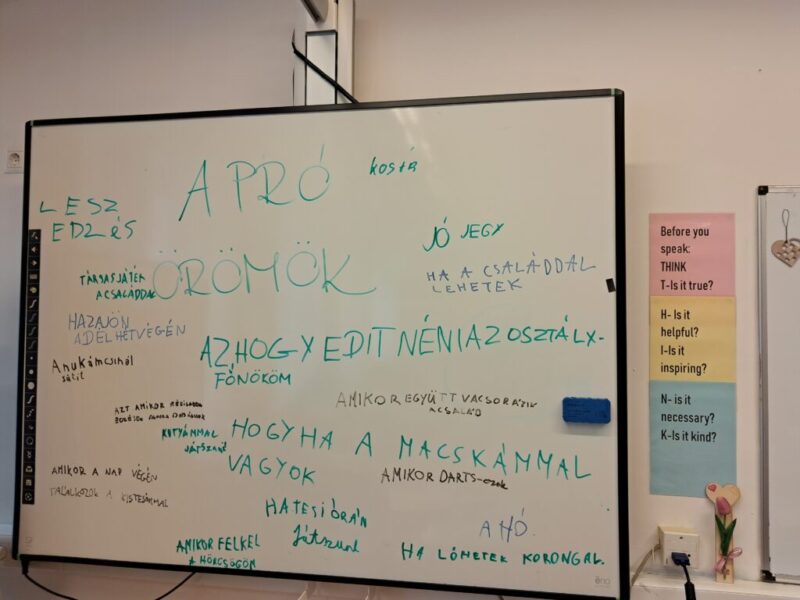 APRÓ
kosár
LESZ
EDZéS
JÓ JEGY
ÖRÖMÖK
TÁRSASJÁTÉK
A CSALÁDDAL
HA A CSALÁDDAL
LEHETEK
HAZAJÖN
ADÉL HÉTVÉGÉN
AZ, HOGY EDIT NÉNI AZ OSZTÁLY-
FŐNÖKÖM
Anyukám csinál
sütit
AMIKOR EGYÜTT VACSORÁZIK
A CSALÁD
AZT AMIKOR
KUTYÁMMAL
JÁTSZANI
HOGYHA A MACSKÁMMAL
VAGYOK
AMIKOR DARTS-ozok
AMIKOR A NAP VÉGÉN
TALÁLKOZOK A KISTESÓMMAL
HA TESIÓRÁN
játszunk
A HÓ.
AMIKOR FELKEL
A HÖRCSÖGÖM
HA LŐHETEK KORONGAL.
Before you
speak:
THINK
T-Is it true?
H- Is it
helpful?
I-Is it
inspiring?
N- is it
necessary?
K-Is it kind?